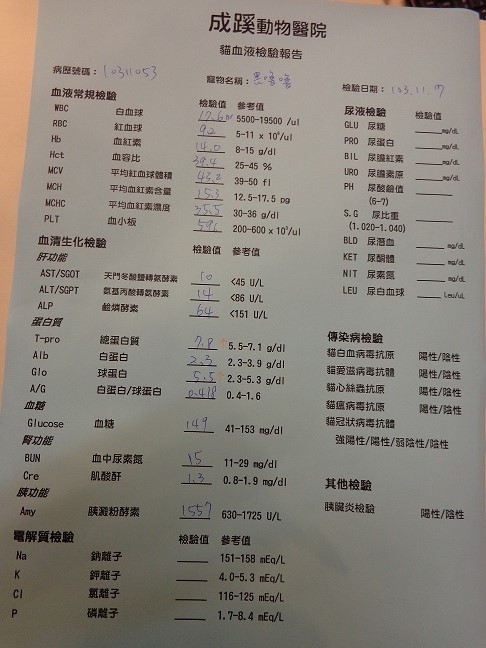 成蹊動物醫院
貓血液檢驗報告
病歷號碼：10311053
寵物名稱：黑嚕嚕
檢驗日期：103.11.17
血液常規檢驗 檢驗值 參考值
WBC 白血球 5500-19500 /ul
RBC 紅血球 9.2 5-11 x 10⁶/ul
Hb 血紅素 14.0 8-15 g/dl
Hct 血容比 39.4 25-45 %
MCV 平均紅血球體積 43.2 39-50 fl
MCH 平均血紅素含量 15.3 12.5-17.5 pg
MCHC 平均血紅素濃度 35.5 30-36 g/dl
PLT 血小板 591 200-600 x 10³/ul
血清生化檢驗 檢驗值 參考值
肝功能
AST/SGOT 天門冬酸轉氨酵素 10 <45 U/L
ALT/SGPT 氨基丙酸轉氨酵素 14 <86 U/L
ALP 鹼燐酵素 64 <151 U/L
蛋白質
T-pro 總蛋白質 7.8 5.5-7.1 g/dl
Alb 白蛋白 2.3 2.3-3.9 g/dl
Glo 球蛋白 5.5 2.3-5.3 g/dl
A/G 白蛋白/球蛋白 0.418 0.4-1.6
血糖
Glucose 血糖 149 41-153 mg/dl
腎功能
BUN 血中尿素氮 15 11-29 mg/dl
Cre 肌酸酐 1.3 0.8-1.9 mg/dl
胰功能
Amy 胰澱粉酵素 1557 630-1725 U/L
電解質檢驗 檢驗值 參考值
Na 鈉離子 151-158 mEq/L
K 鉀離子 4.0-5.3 mEq/L
Cl 氯離子 116-125 mEq/L
P 磷離子 1.7-8.4 mEq/L
尿液檢驗 檢驗值
GLU 尿糖 mg/dL
PRO 尿蛋白 mg/dL
BIL 尿膽紅素 mg/dL
URO 尿膽素原 mg/dL
PH 尿酸鹼值
(6-7)
S.G 尿比重
(1.020-1.040)
BLD 尿潛血 mg/dL
KET 尿酮體 mg/dL
NIT 尿素氮 mg/dL
LEU 尿白血球 Leu/uL
傳染病檢驗
貓白血病毒抗原 陽性/陰性
貓愛滋病毒抗體 陽性/陰性
貓心絲蟲抗原 陽性/陰性
貓瘟病毒抗原 陽性/陰性
貓冠狀病毒抗體
強陽性/陽性/弱陰性/陰性
其他檢驗
胰臟炎檢驗 陽性/陰性